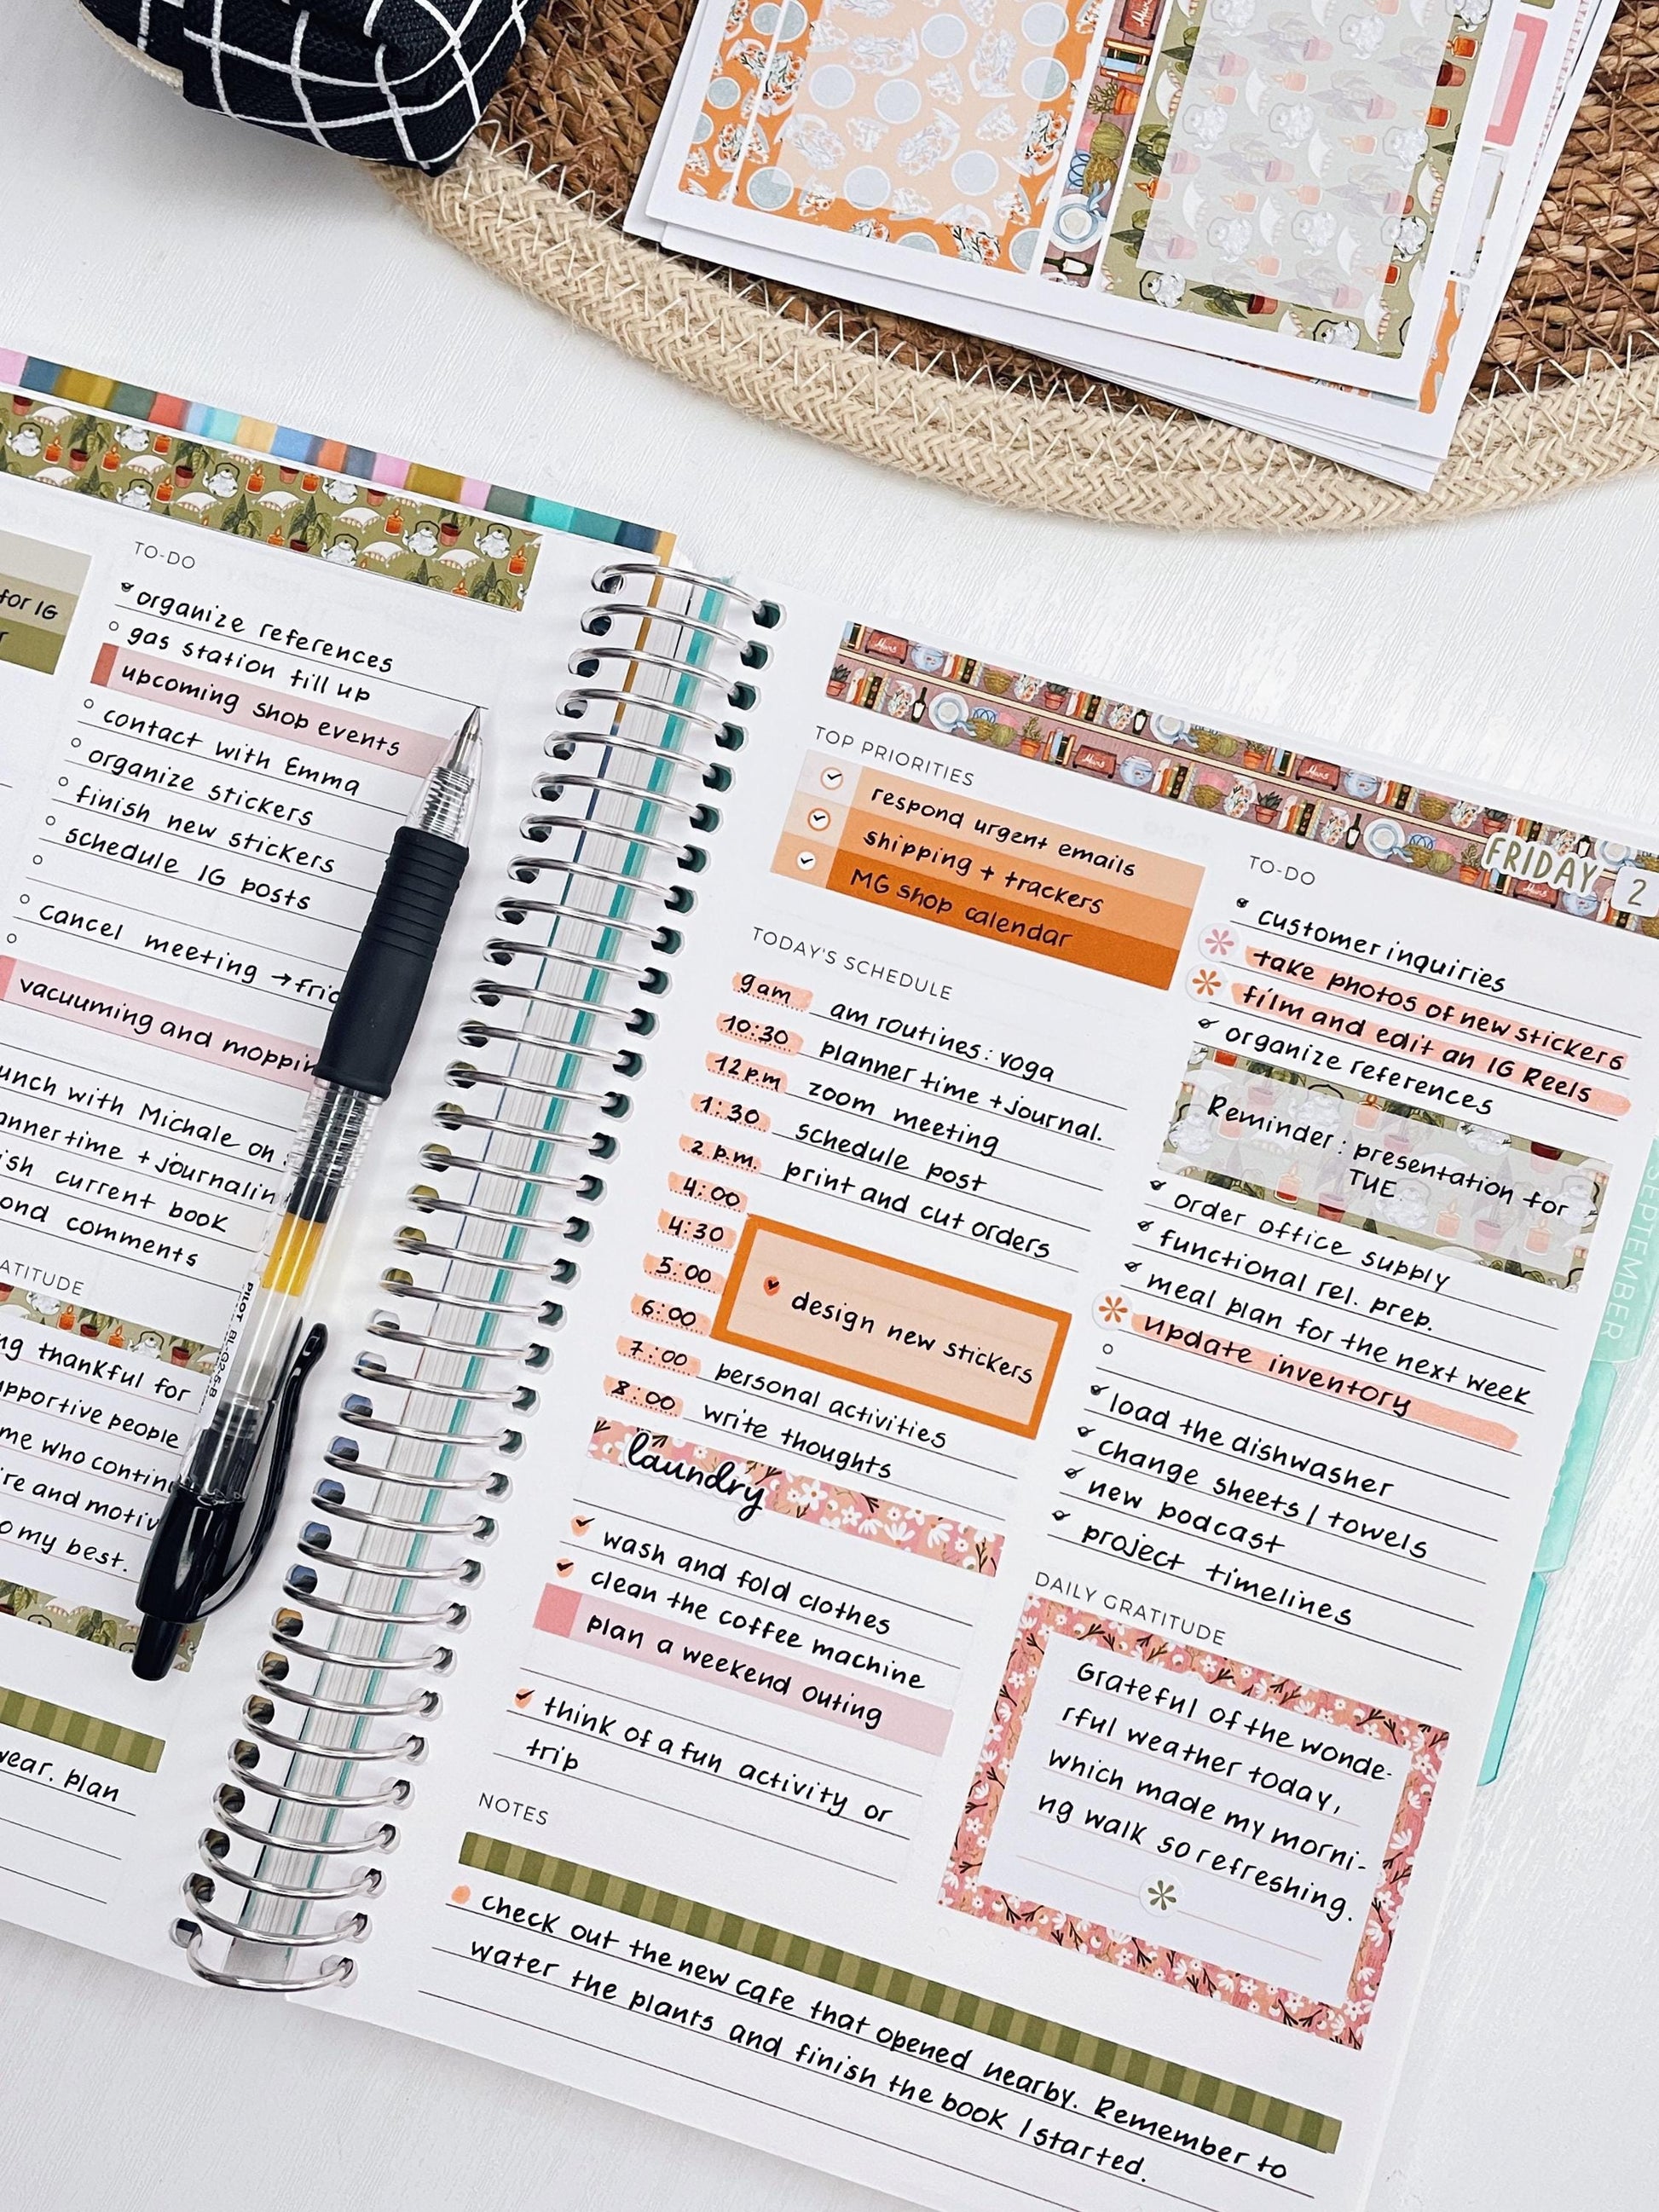 for IG
TO-DO
organize references
gas station fill up
upcoming shop events
contact with Emma
organize stickers
finish new stickers
schedule IG posts
cancel meeting →fri
vacuuming and moppin
unch with Michale on
annertime +journalin
ish current book
ond comments
ATITUDE
ng thankful for
upportive people
me who contin
re and motiv
o my best.
wear. plan
PILOT BL-G2-5-B
TOP PRIORITIES
respond urgent emails
shipping + trackers
MG shop calendar
TODAY'S SCHEDULE
9am am routines: yoga
10:30 planner time +journal.
12pm zoom meeting
1:30 schedule post
2 p.m. print and cut orders
4:00
4:30
5:00 design new stickers
6:00
7:00 personal activities
8:00 write thoughts
laundry
wash and fold clothes
clean the coffee machine
plan a weekend outing
think of a fun activity or
trip
FRIDAY 2
TO-DO
customer inquiries
take photos of new stickers
film and edit an IG Reels
organize references
Reminder: presentation for
TUE
order office supply
functional rel. prep.
meal plan for the next week
update inventory
load the dishwasher
change sheets / towels
new podcast
project timelines
DAILY GRATITUDE
Grateful of the wonde-
rful weather today,
which made my morni-
ng walk so refreshing.
NOTES
check out the new cafe that opened nearby. Remember to
water the plants and finish the book I started.
SEPTEMBER